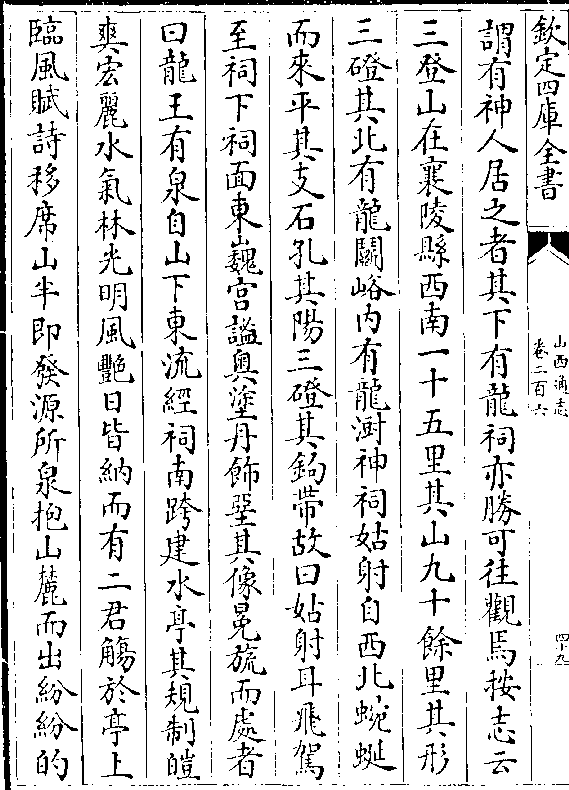 欽定四庫全書
山西通志
卷二百六
四十九
謂有神人居之者其下有龍祠亦勝可往觀焉按志云
三登山在襄陵縣西南一十五里其山九十餘里其形
三磴其北有龍鬭峪内有龍澍神祠姑射自西北蜿蜒
而來平其支石孔其陽三磴其鉤帶故曰姑射耳飛駕
至祠下祠面東巍宫謐奥塗丹飾堊其像冕旒而處者
曰龍王有泉自山下東流經祠南跨建水亭其規制皚
爽宏麗水氣林光明風艷日皆納而有二君觴於亭上
臨風賦詩移席山半即發源所泉抱山麓而出紛紛的